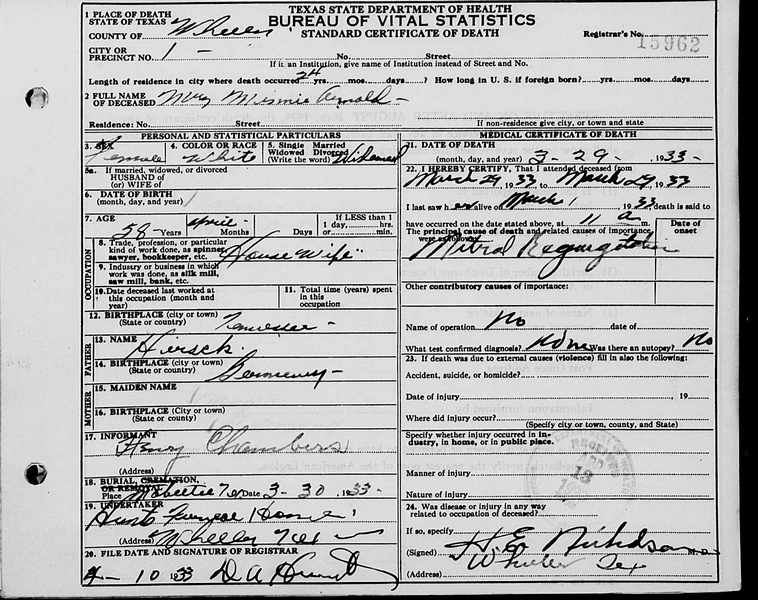 TEXAS STATE DEPARTMENT OF HEALTH
BUREAU OF VITAL STATISTICS
STANDARD CERTIFICATE OF DEATH
1 PLACE OF DEATH
STATE OF TEXAS
COUNTY OF Wheeler
Registrar's No.
15962
CITY OR
PRECINCT NO. 1 - No. Street
If it an Institution, give name of Institution instead of Street and No.
Length of residence in city where death occurred 24 yrs. mos. days ? How long in U. S. if foreign born? yrs. mos. days
2 FULL NAME
OF DECEASED Minnie Arnold -
Residence: No. Street
If non-residence give city, or town and state
PERSONAL AND STATISTICAL PARTICULARS
3. SEX
Female
4. COLOR OR RACE
White
5. Single Married
Widowed Divorced
(Write the word) Widowed
5a. If married, widowed, or divorced
HUSBAND OF
(or) WIFE of
6. DATE OF BIRTH
(month, day, and year)
7. AGE
58 Years April Months Days
If LESS than 1
1 day, hrs.
or min.
OCCUPATION
8. Trade, profession, or particular
kind of work done, as spinner
sawyer, bookkeeper, etc. House Wife
9. Industry or business in which
work was done, as silk mill,
saw mill, bank, etc.
10. Date deceased last worked at
this occupation (month and
year)
11. Total time (years) spent
in this
occupation
12. BIRTHPLACE (city or town)
(State or country) Tennessee -
FATHER
13. NAME
14. BIRTHPLACE (city or town)
(State or country) Germany -
MOTHER
15. MAIDEN NAME
16. BIRTHPLACE (City or town)
(State or country)
17. INFORMANT
Henry Chambers
(Address)
18. BURIAL, CREMATION,
OR REMOVAL
Place Mobeetie Tex Date 3-30 1933-
19. UNDERTAKER
Hunt Funeral Home
(Address) Wheeler Tex
20. FILE DATE AND SIGNATURE OF REGISTRAR
4-10 1933 D A Hunt
MEDICAL CERTIFICATE OF DEATH
21. DATE OF DEATH
(month, day, and year) 3-29- 1933-
22. I HEREBY CERTIFY, That I attended deceased from
March 29 1933 to March 29 1933
I last saw h er alive on March 1933, death is said to
have occurred on the date stated above, at 11 a m.
The principal cause of death and related causes of importance
were as follows:
Mitral Regurgitation
Date of
onset
Other contributory causes of importance:
Name of operation No date of
What test confirmed diagnosis? None Was there an autopsy? No
23. If death was due to external causes (violence) fill in also the following:
Accident, suicide, or homicide?
Date of injury , 19
Where did injury occur?
(Specify city or town, county, and State)
Specify whether injury occurred in in-
dustry, in home, or in public place.
RECEIVED
APR
13
Manner of injury
Nature of injury
24. Was disease or injury in any way
related to occupation of deceased?
If so, specify
(Signed) H. E. Nicholson M.D.
(Address) Wheeler Tex